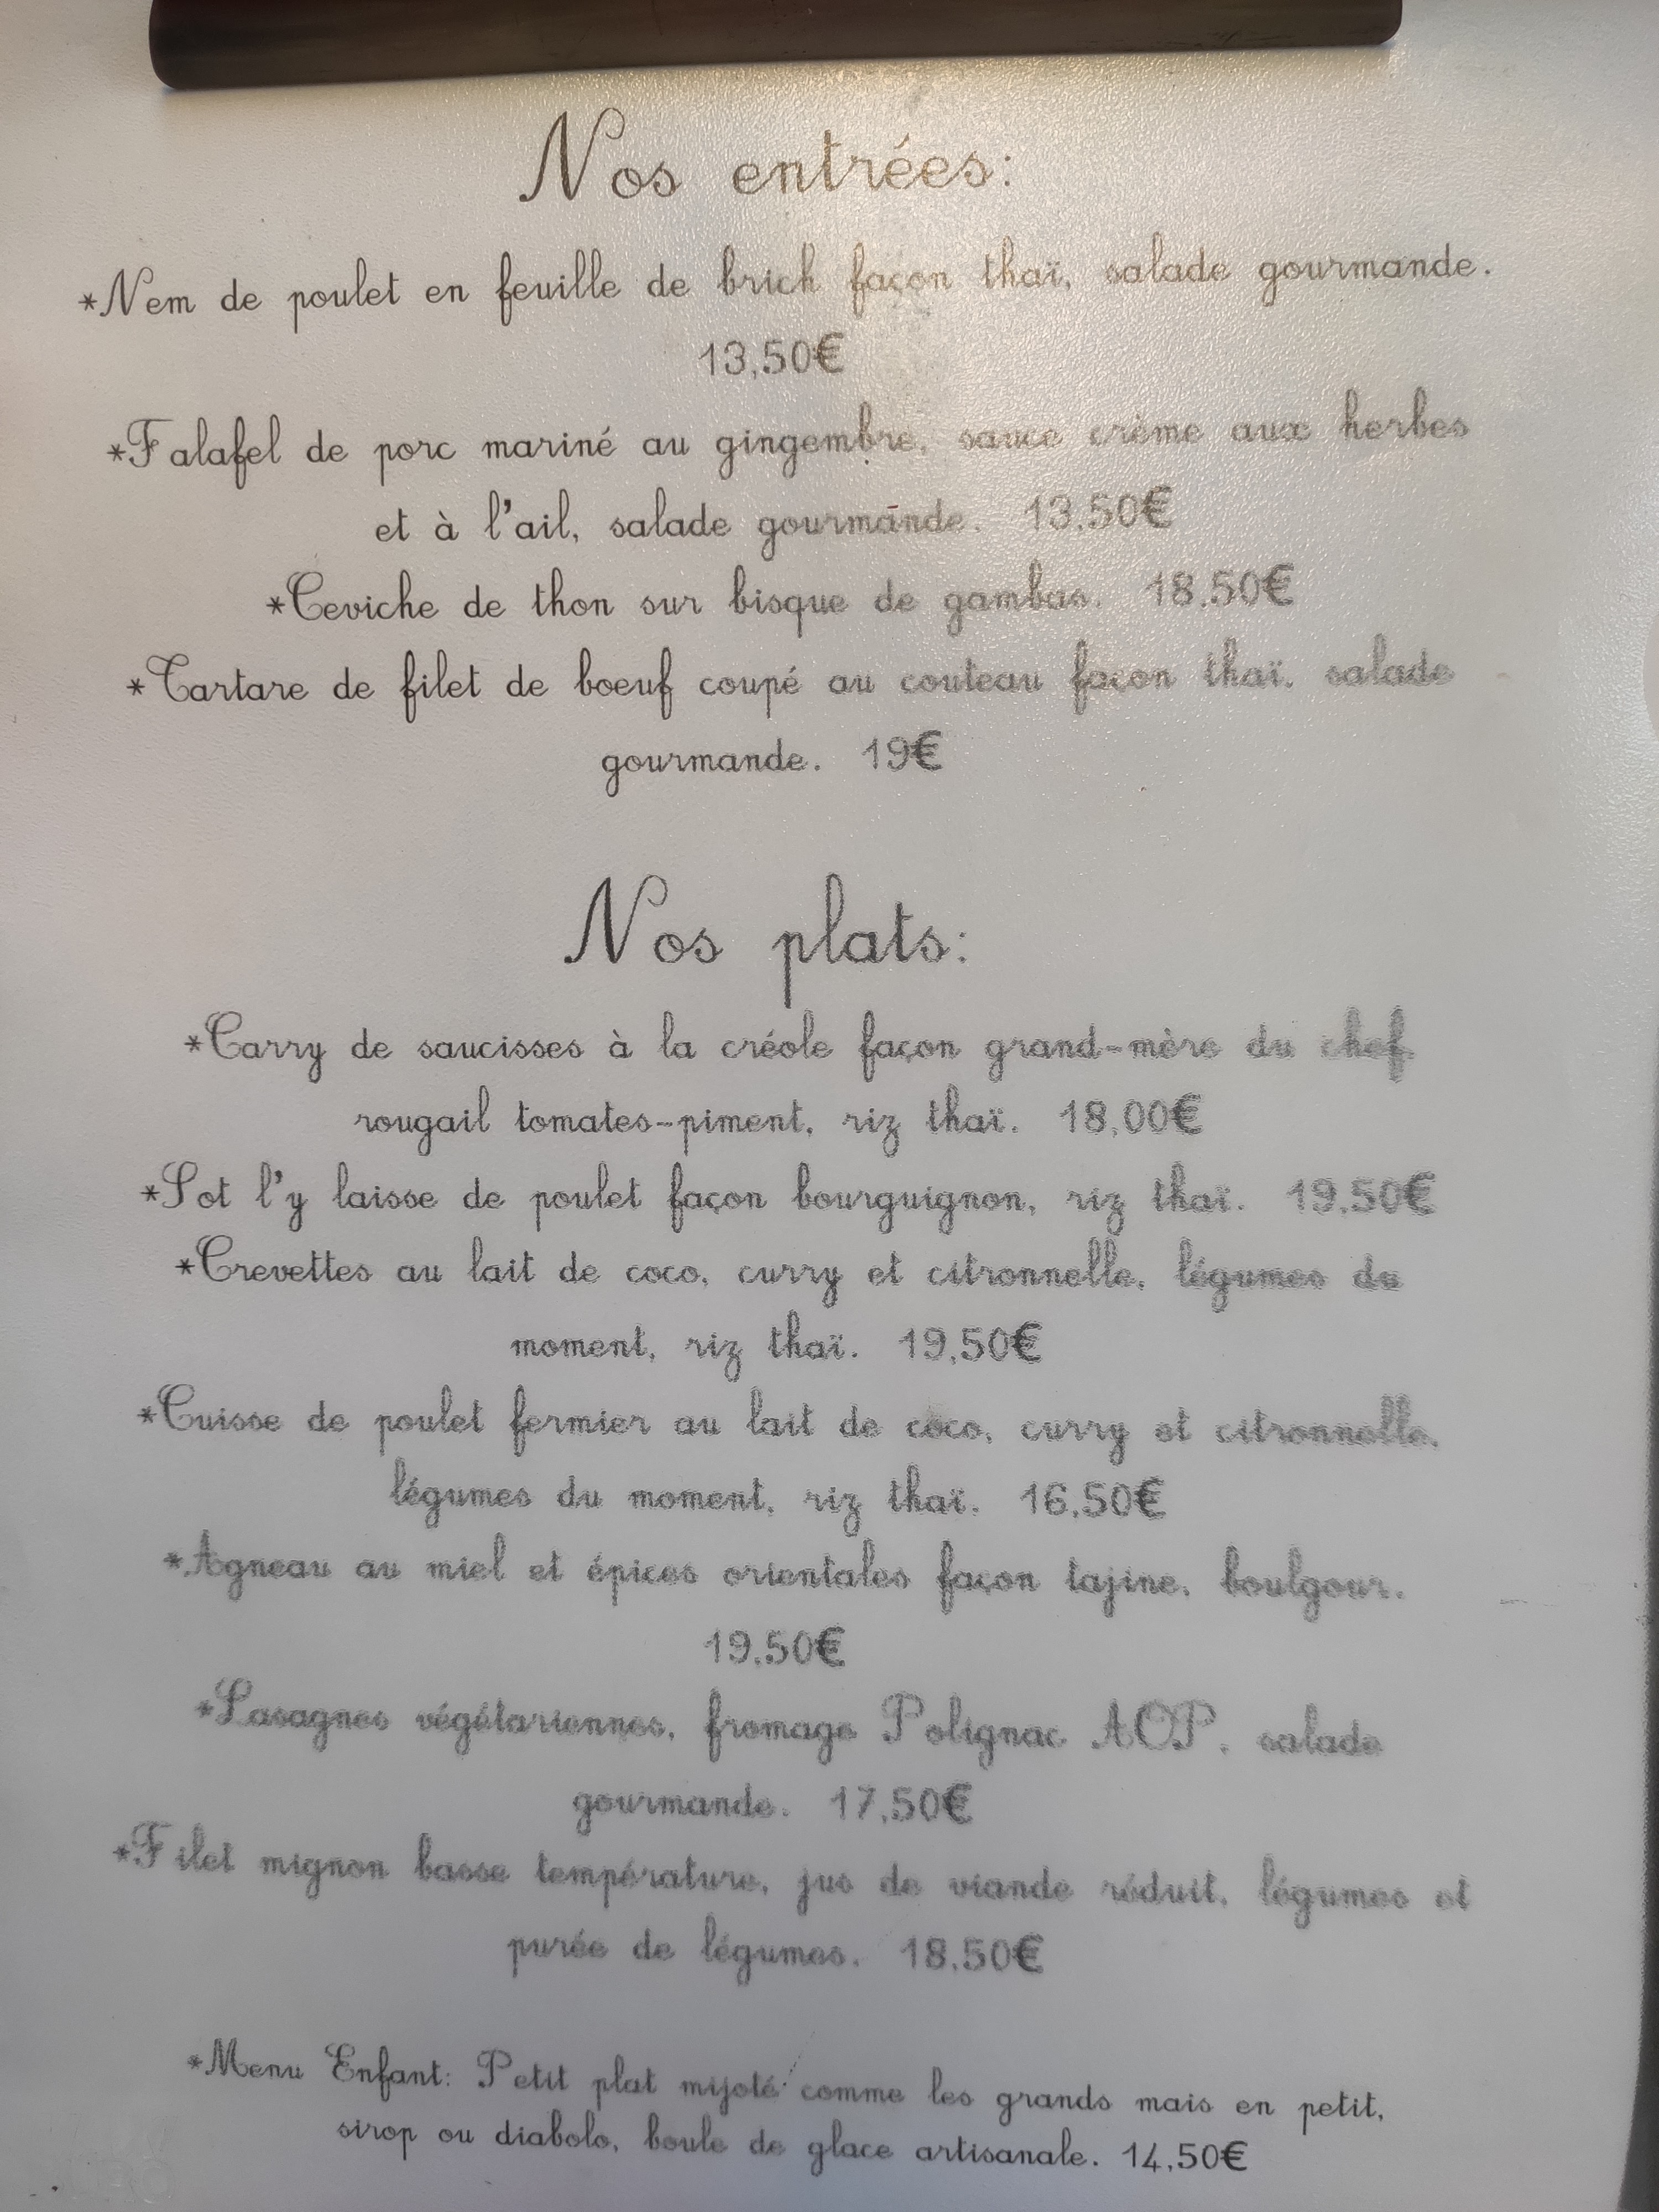 Nos entrées:
*Nem de poulet en feuille de brick façon thaï, salade gourmande.
13,50€
*Falafel de porc mariné au gingembre, sauce crème aux herbes
et à l'ail, salade gourmande. 13,50€
*Ceviche de thon sur bisque de gambas. 18,50€
*Tartare de filet de boeuf coupé au couteau façon thaï, salade
gourmande. 19€
Nos plats:
*Carry de saucisses à la créole façon grand-mère du chef
rougail tomates-piment, riz thaï. 18,00€
*Sot l'y laisse de poulet façon bourguignon, riz thaï. 19,50€
*Crevettes au lait de coco, curry et citronnelle, légumes du
moment, riz thaï. 19,50€
*Cuisse de poulet fermier au lait de coco, curry et citronnelle,
légumes du moment, riz thaï. 16,50€
*Agneau au miel et épices orientales façon tajine, boulgour.
19,50€
*Lasagnes végétariennes, fromage Polignac AOP, salade
gourmande. 17,50€
*Filet mignon basse température, jus de viande réduit, légumes et
purée de légumes. 18,50€
*Menu Enfant: Petit plat mijoté comme les grands mais en petit,
sirop ou diabolo, boule de glace artisanale. 14,50€